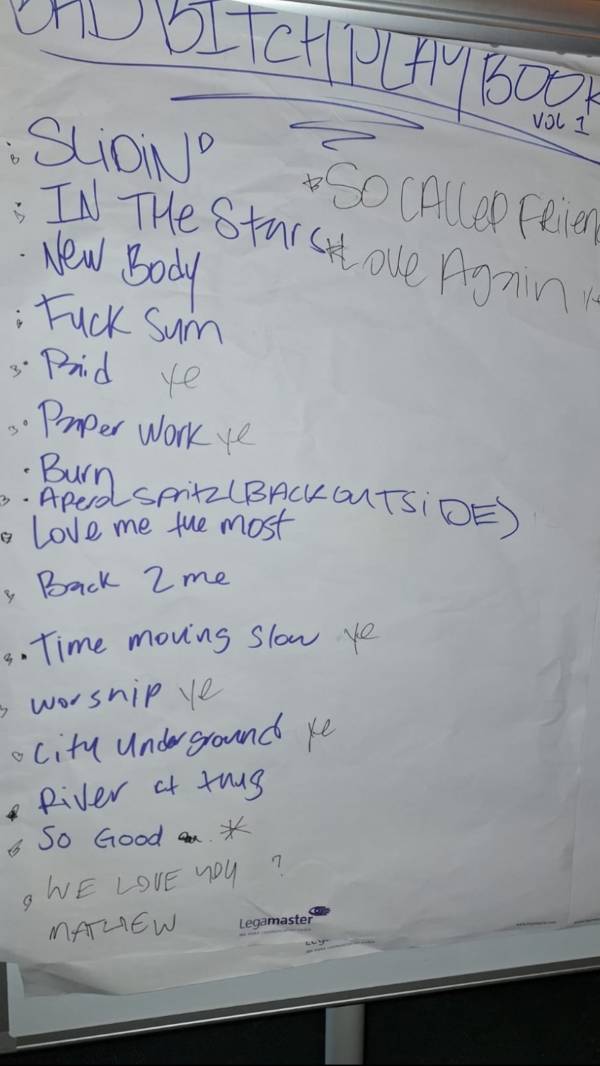 BAD BITCH PLAY BOOK
VOL 1
SLiDiN
IN THE Stars
New Body
Fuck Sum
Paid ye
Paper Work ye
Burn
Aperol Spritz (BACK OUTSiDE)
Love me the most
Back 2 me
Time moving slow ye
worship ye
City Underground ye
River at thug
So Good *
WE LOVE YOU ?
MATHEW
* SO CALLED
* Love Again ye
Legamaster